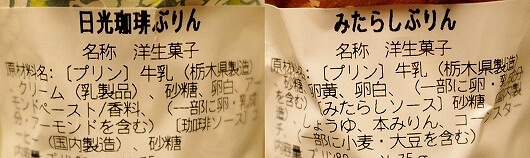 日光珈琲ぷりん
名称 洋生菓子
原材料名:〔プリン〕牛乳（栃木県製造）
クリーム（乳製品）、砂糖、卵白、ア
モンドペースト/香料、（一部に卵・乳成
分・アーモンドを含む）〔珈琲ソース〕
（国内製造）、砂糖
みたらしぷりん
名称 洋生菓子
原材料名:〔プリン〕牛乳（栃木県製造）
卵黄、卵白、（一部に卵・乳
〔みたらしソース〕砂糖
、しょうゆ、本みりん、コーンスター
（一部に小麦・大豆を含む）